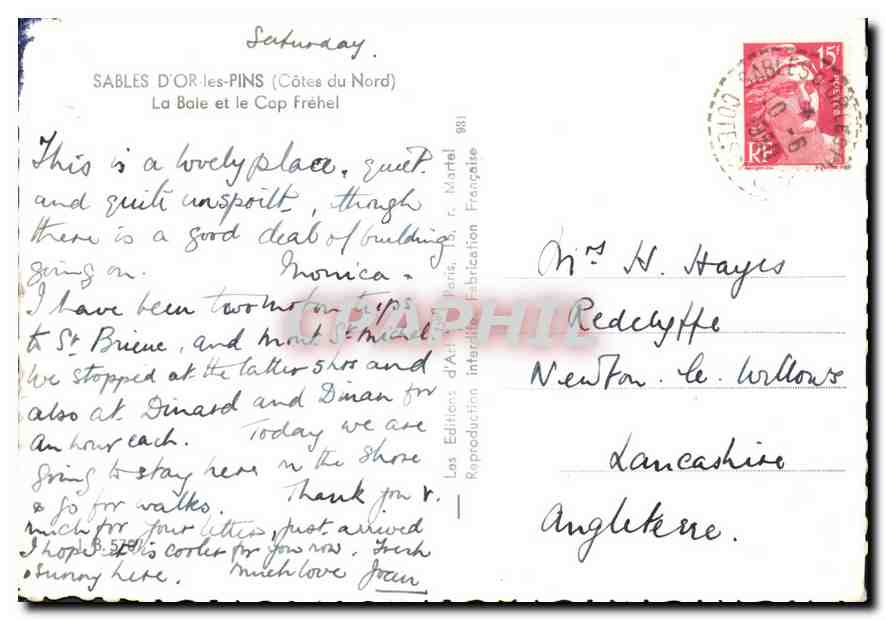 Saturday.
SABLES D'OR-les-PINS (Côtes du Nord)
La Baie et le Cap Fréhel
This is a lovely place, quiet
and quite unspoilt, though
there is a good deal of building
going on. Monica &
I have been two motor trips
to St Brieuc, and Mont St Michel.
We stopped at the latter 3 hrs and
also at Dinard and Dinan for
an hour each. Today we are
going to stay here on the shore
& go for walks. Thank you v.
much for your letter, just arrived
I hope it is cooler for you now. Fresh
& sunny here. Much love Joan
Les Editions d'Art Paris, 15, r. Martel 981
Reproduction interdite Fabrication Française
CPAPHIL
15F
POSTES
RF
SABLES D'OR LES PINS
COTES
Mrs H. Hayes
Redclyffe
Newton-le-Willows
Lancashire
Angleterre.